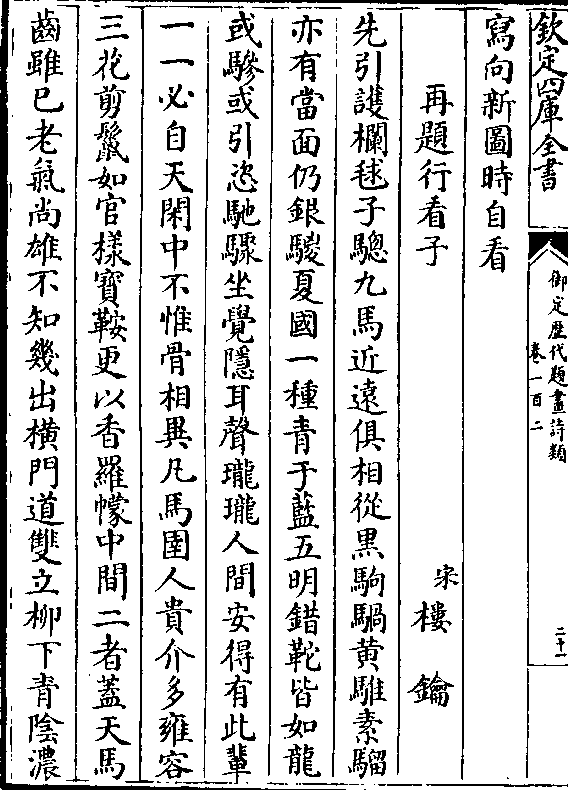 欽定四庫全書
御定歷代題畫詩類
卷一百二
二十一
寫向新圖時自看
再題行看子
宋樓鑰
先引護欄毬子驄九馬近遠俱相從黒駒騧黄騅素騮
亦有當面仍銀騣夏國一種青于藍五明錯鞁皆如龍
或驂或引恣馳驟坐覺隱耳聲瓏瓏人間安得有此輩
一一必自天閑中不惟骨相異凡馬圉人貴介多雍容
三花剪鬛如官樣寶鞍更以香羅幪中間二者蓋天馬
齒雖已老氣尚雄不知幾出橫門道雙立柳下青陰濃